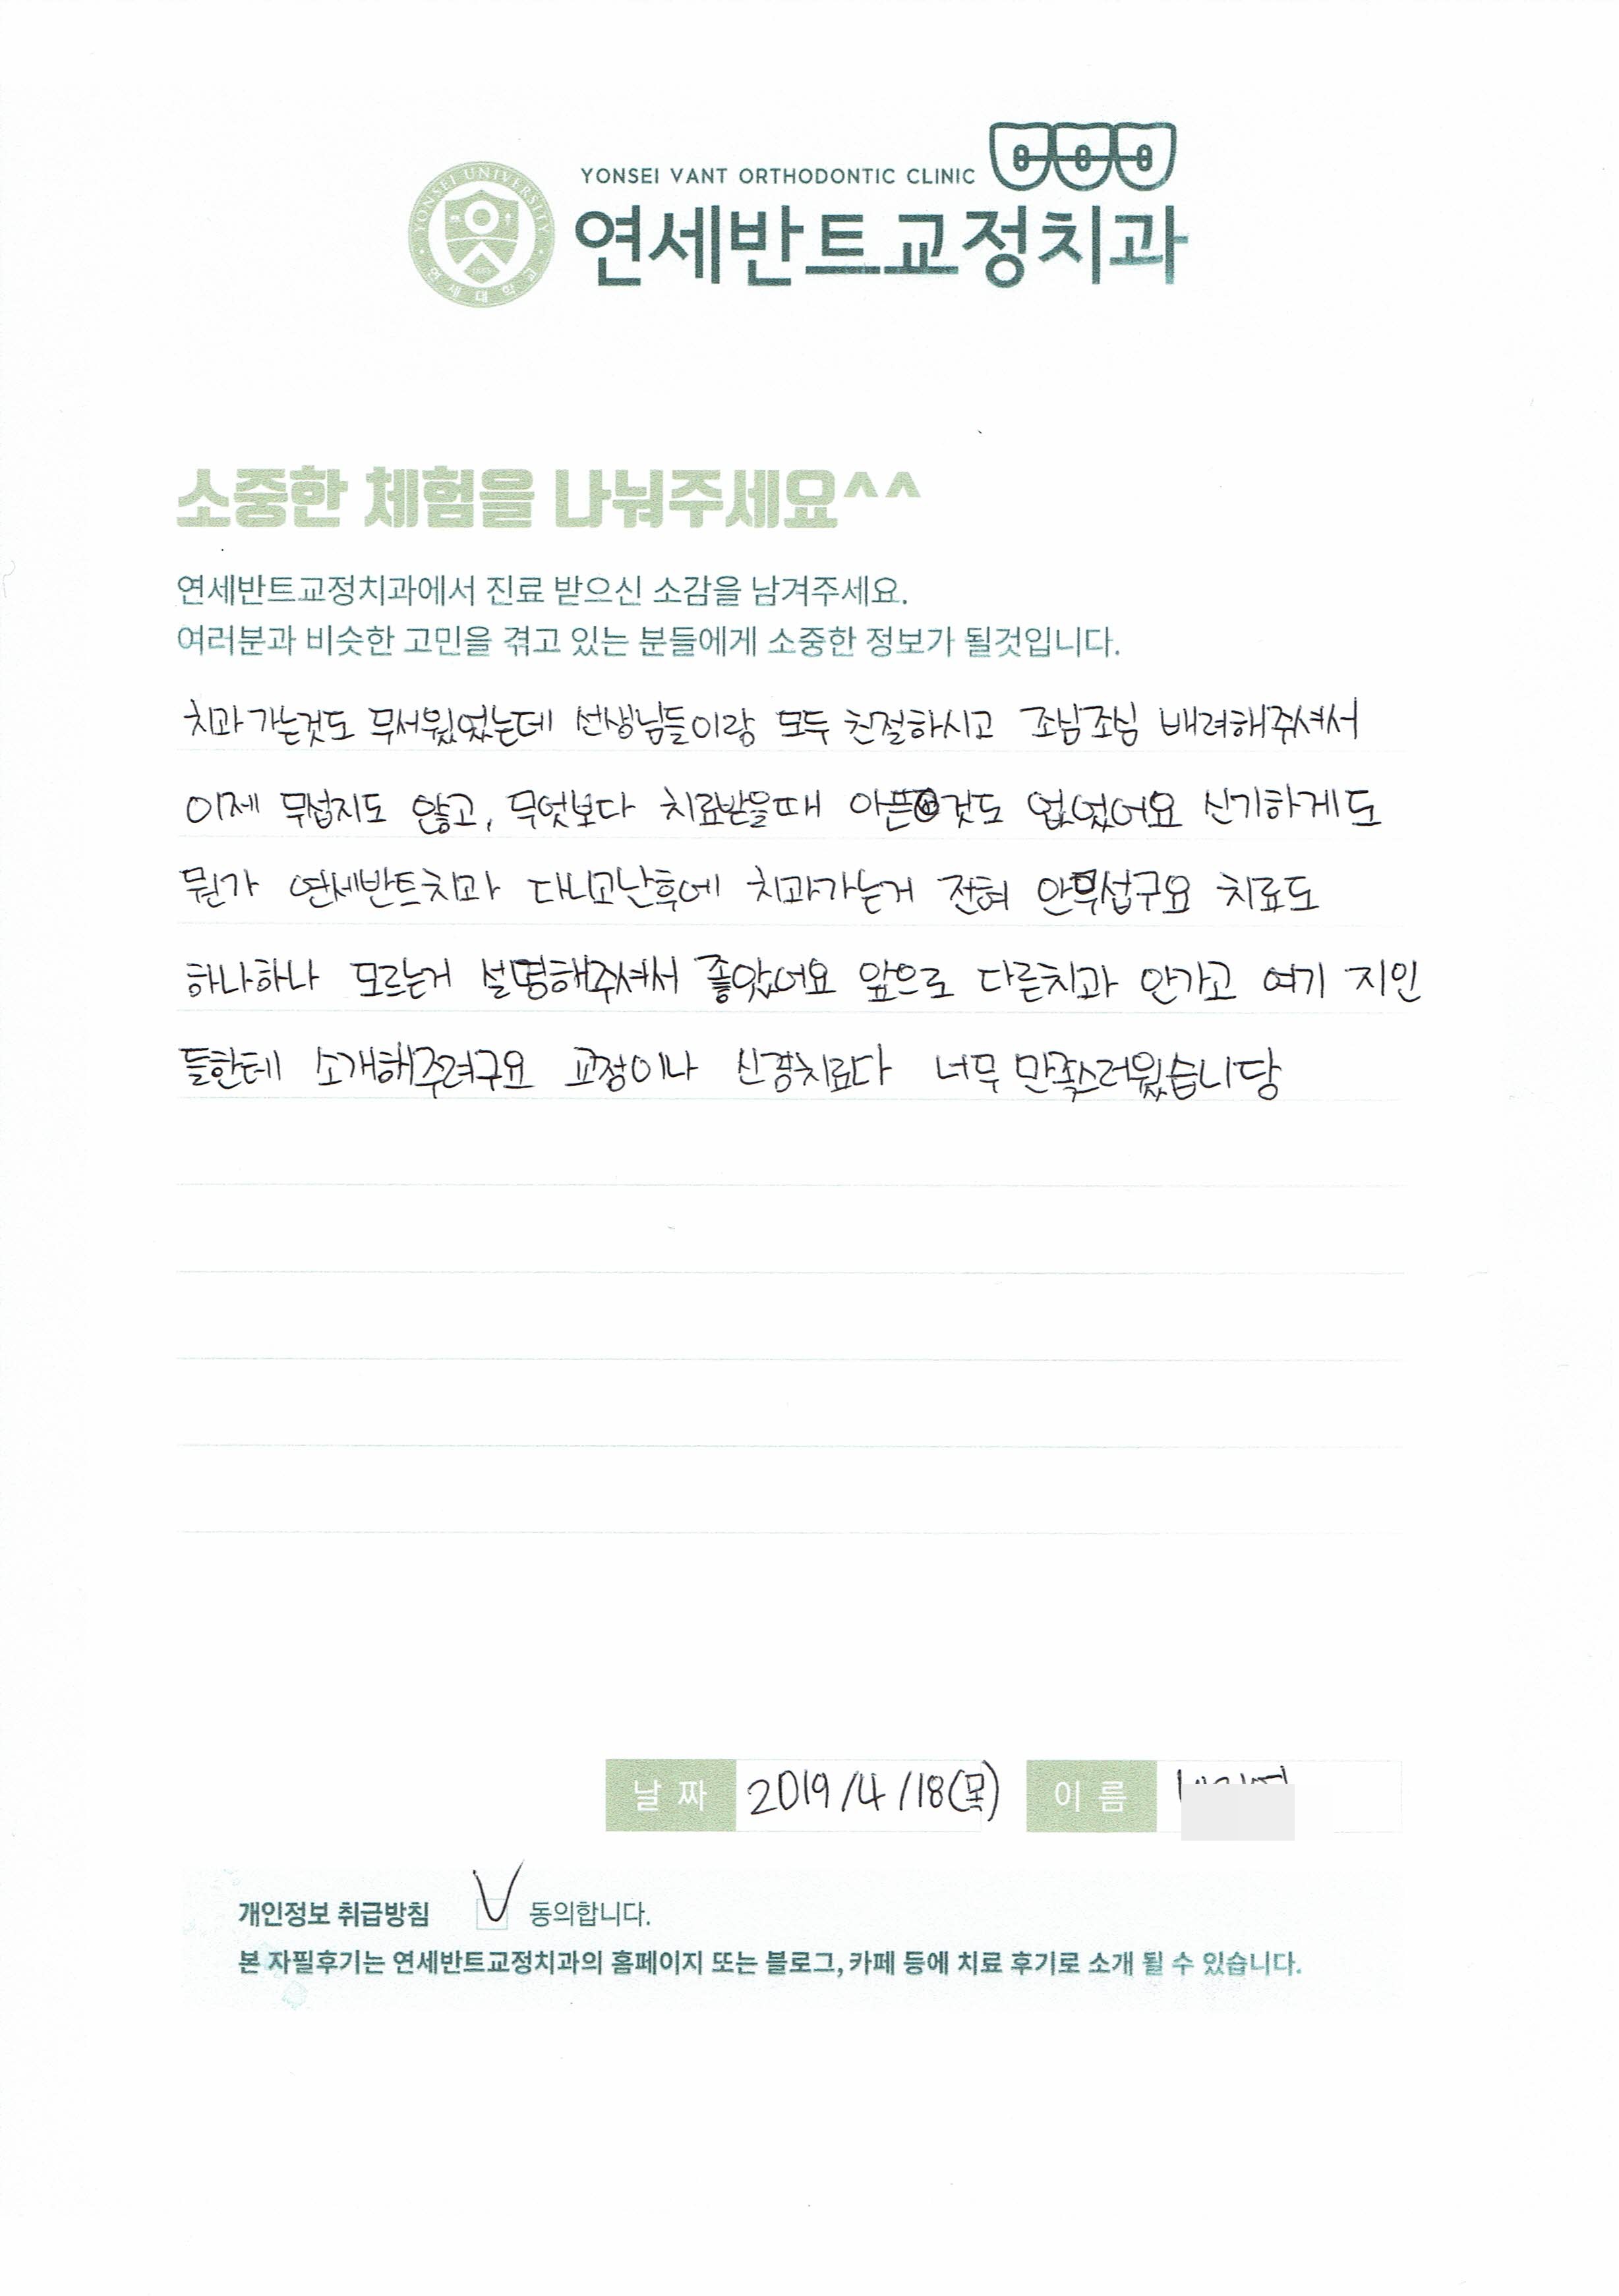 YONSEI VANT ORTHODONTIC CLINIC
연세반트교정치과
YONSEI UNIVERSITY
연세대학교
1885
소중한 체험을 나눠주세요^^
연세반트교정치과에서 진료 받으신 소감을 남겨주세요.
여러분과 비슷한 고민을 겪고 있는 분들에게 소중한 정보가 될것입니다.
치과 가는것도 무서웠었는데 선생님들이랑 모두 친절하시고 조님조님 배려해주셔서
이제 무섭지도 않고, 무엇보다 치료받을때 아픈것도 없었어요 신기하게도
뭔가 연세반트치과 다니고난후에 치과가는거 전혀 안무섭구요 치료도
하나하나 모르는거 설명해주셔서 좋았어요 앞으로 다른치과 안가고 여기 지인
들한테 소개해주려구요 교정이나 신경치료다 너무 만족스러웠습니당
날 짜 2019/4/18(목) 이 름
개인정보 취급방침 V 동의합니다.
본 자필후기는 연세반트교정치과의 홈페이지 또는 블로그, 카페 등에 치료 후기로 소개 될 수 있습니다.